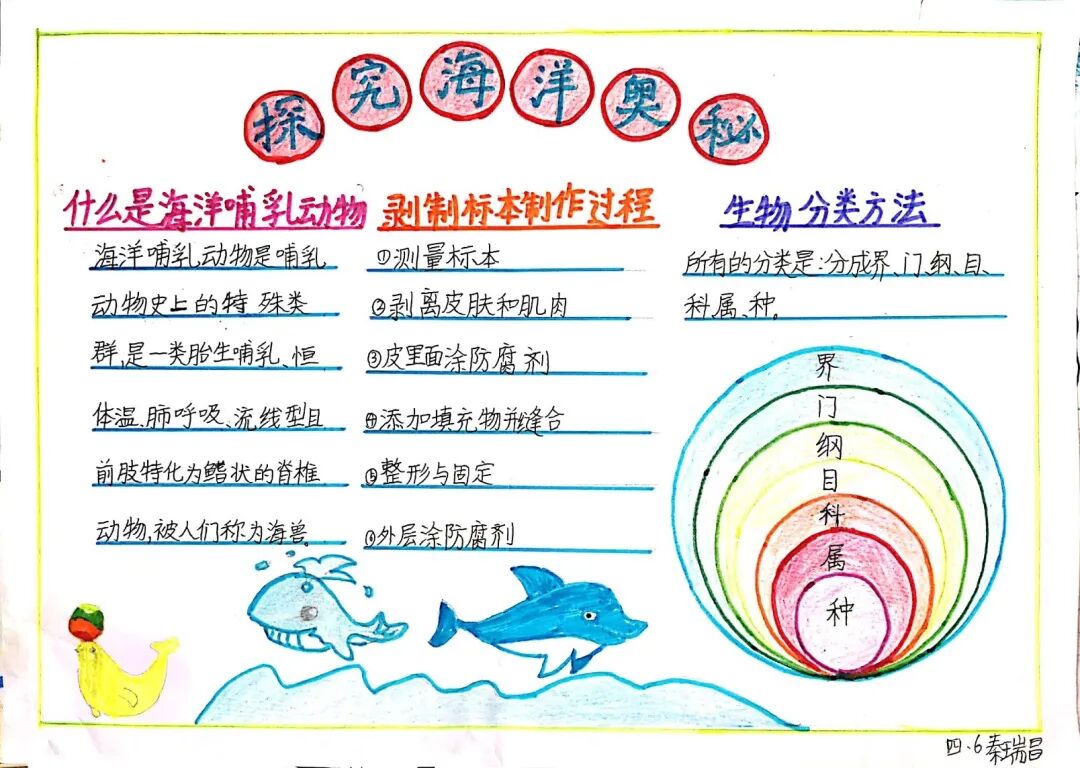 探究海洋奥秘
什么是海洋哺乳动物
海洋哺乳动物是哺乳
动物史上的特殊类
群,是一类胎生哺乳、恒
体温、肺呼吸、流线型且
前肢特化为鳍状的脊椎
动物,被人们称为海兽.
剥制标本制作过程
①测量标本
②剥离皮肤和肌肉
③皮里面涂防腐剂
④添加填充物并缝合
⑤整形与固定
⑥外层涂防腐剂
生物分类方法
所有的分类是:分成界、门、纲、目、
科、属、种。
界
门
纲
目
科
属
种
四.6秦瑞吕